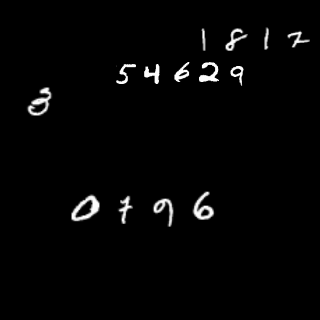 1812
54629
3
0796